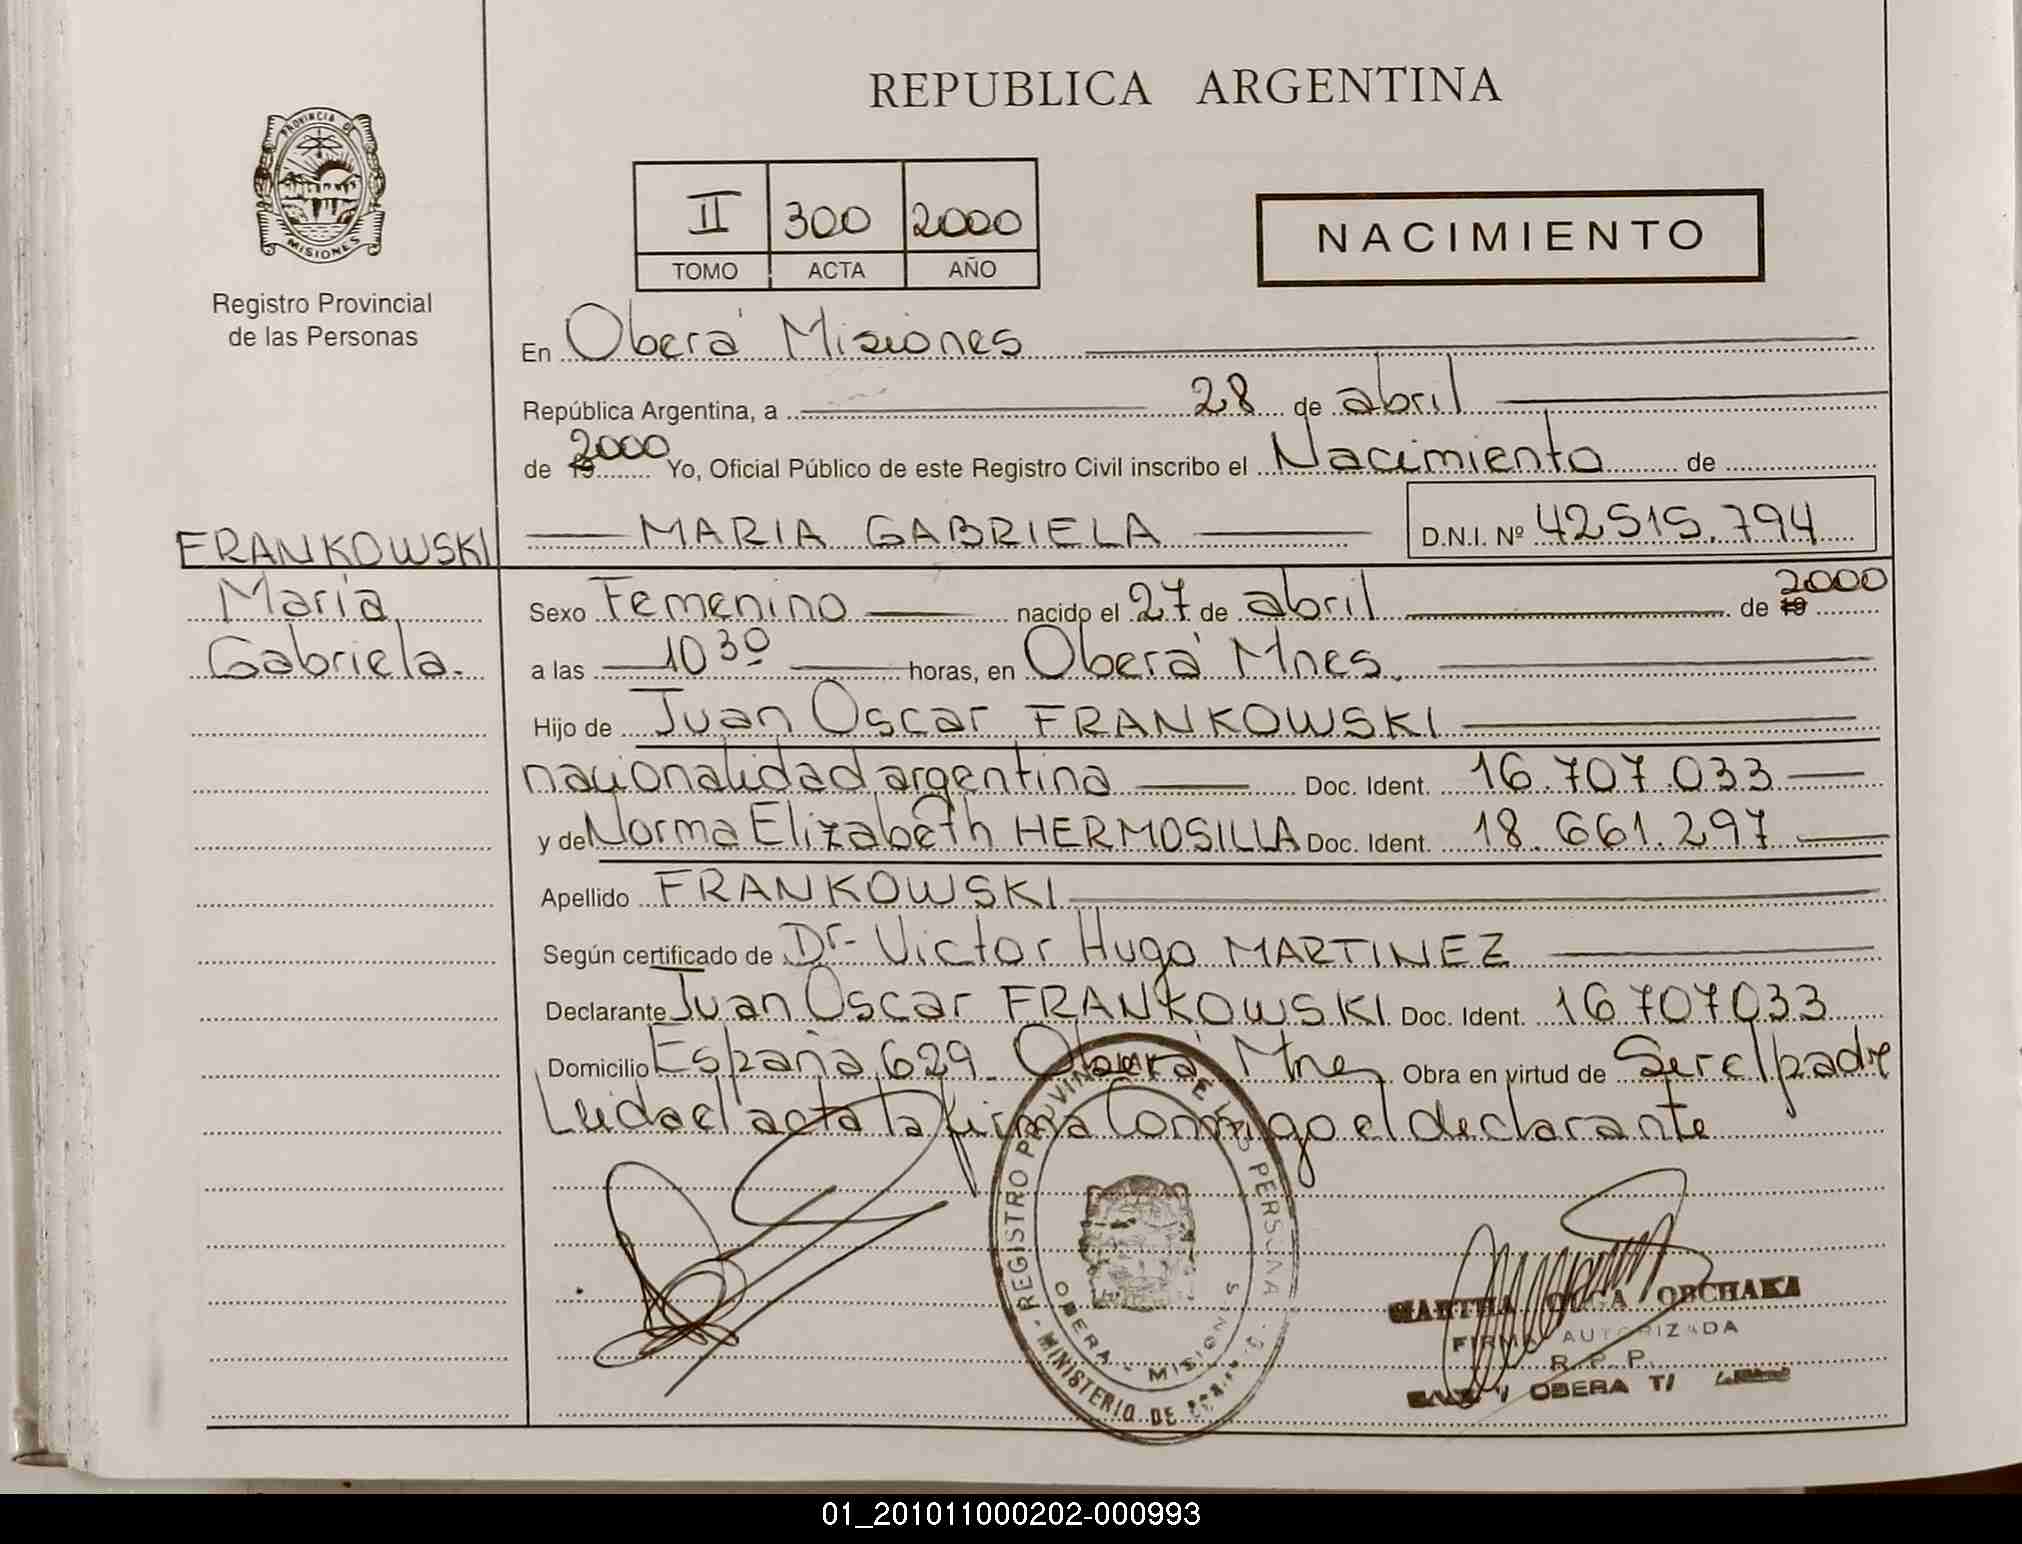 REPUBLICA ARGENTINA
PROVINCIA DE
MISIONES
Registro Provincial
de las Personas
II 300 2000
TOMO ACTA AÑO
NACIMIENTO
En Oberá Misiones
República Argentina, a 28 de abril
de 19 2000 Yo, Oficial Público de este Registro Civil inscribo el Nacimiento de
MARIA GABRIELA D.N.I. Nº 42515.794
FRANKOWSKI
María
Gabriela.
Sexo Femenino nacido el 27 de abril de 19 2000
a las 10 30 horas, en Oberá Mnes.
Hijo de Juan Oscar FRANKOWSKI
nacionalidad argentina Doc. Ident. 16.707.033
y de Norma Elizabeth HERMOSILLA Doc. Ident. 18.661.297
Apellido FRANKOWSKI
Según certificado de Dr. Victor Hugo MARTINEZ
Declarante Juan Oscar FRANKOWSKI Doc. Ident. 16707033
Domicilio España 629 Oberá Mnes Obra en virtud de Ser el padre
Leida el acta la firma Conmigo el declarante
REGISTRO PROVINCIAL DE LAS PERSONAS
MINISTERIO DE
OBERA - MISIONES
MARTHA OLGA ORCHAKA
FIRMA AUTORIZADA
R. P. P.
OBERA
01_201011000202-000993